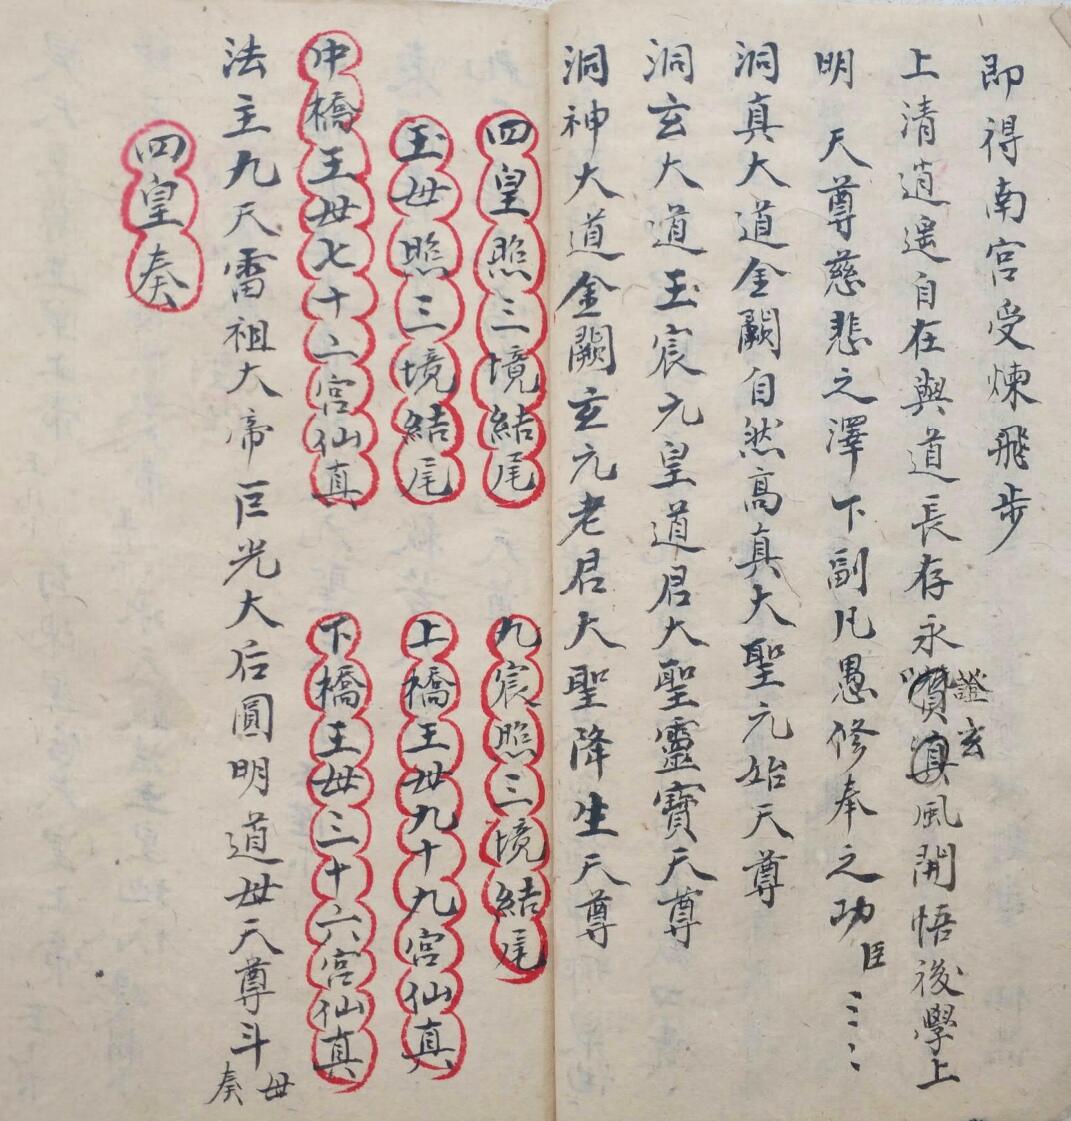 即得南宮受煉飛步
上清逍遥自在與道長存永證玄風開悟後學上
明天尊慈悲之澤下副凡愚修奉之功臣〻〻
洞真大道金闕自然高真大聖元始天尊
洞玄大道玉宸元皇道君大聖靈寶天尊
洞神大道金闕玄元老君大聖降生天尊
四皇照三境結尾
九宸照三境結尾
玉母照三境結尾
上橋王母九十九宮仙真
中橋王母七十二宮仙真
下橋王母三十六宮仙真
法主九天雷祖大帝巨光大后圓明道母天尊斗母奏
四皇奏